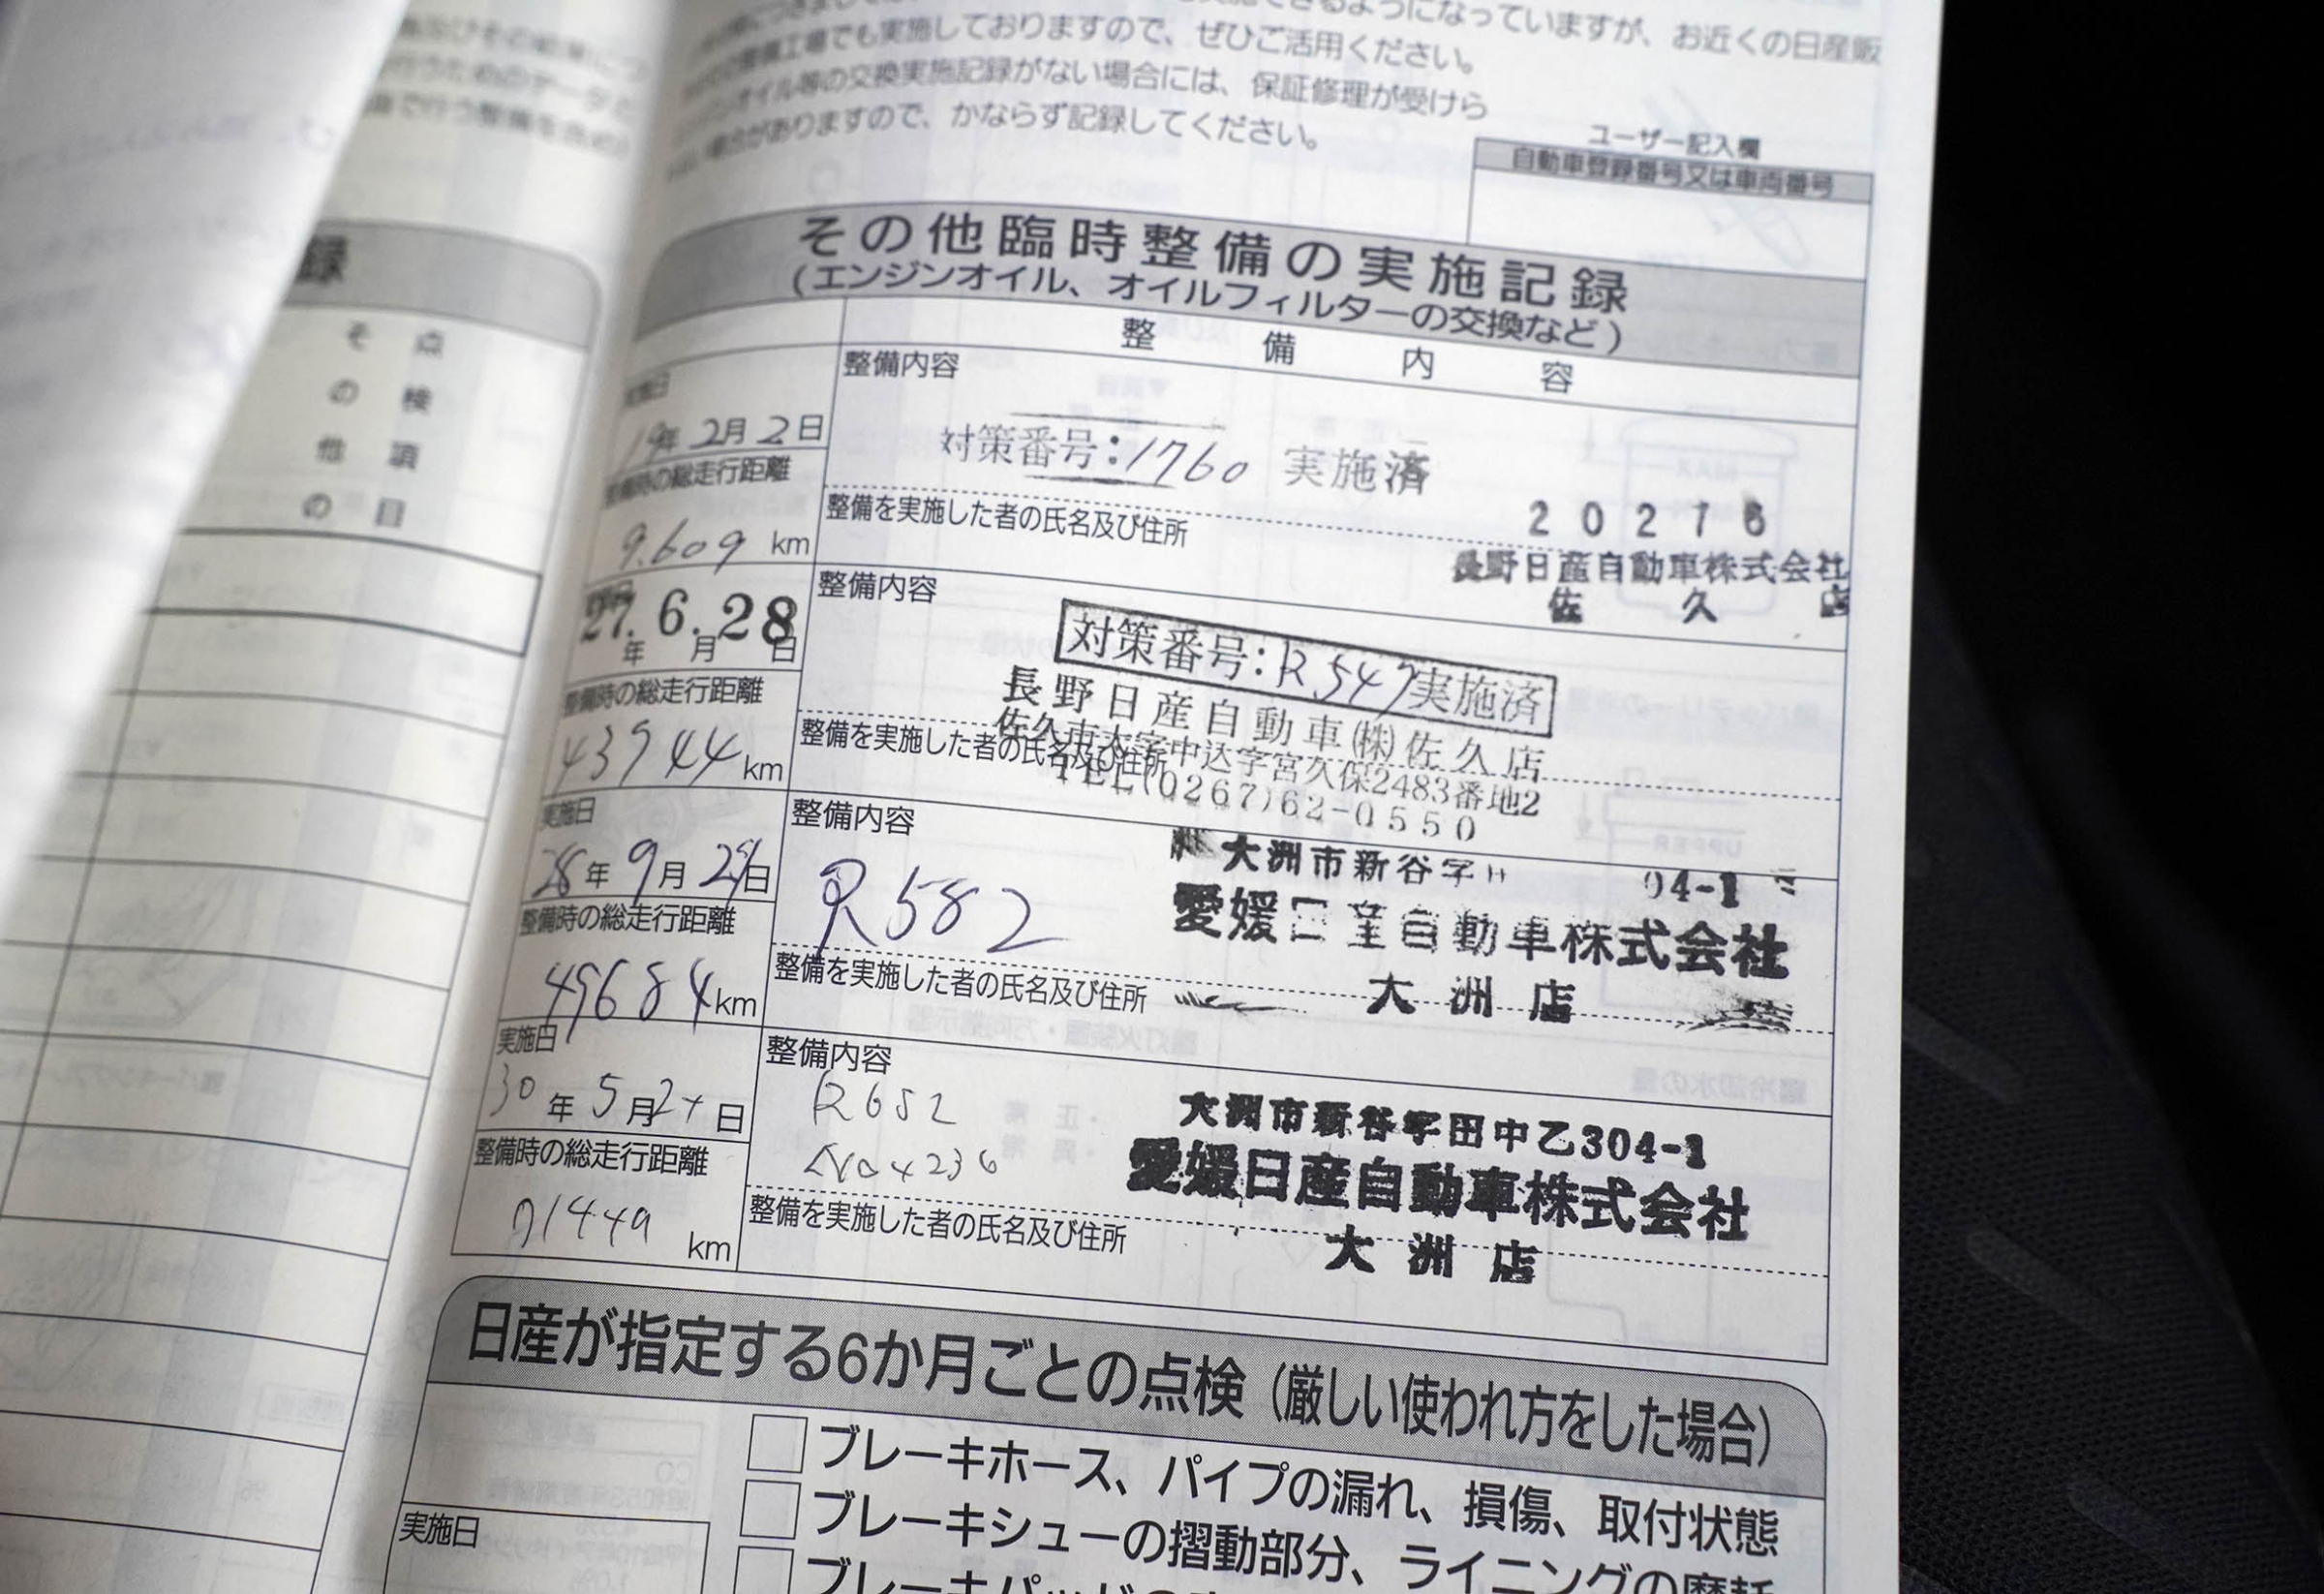 できるようになっていますが、お近くの日産販
整備工場でも実施しておりますので、ぜひご活用ください。
オイル等の交換実施記録がない場合には、保証修理が受けら
場合がありますので、かならず記録してください。
ユーザー記入欄
自動車登録番号又は車両番号
その他臨時整備の実施記録
(エンジンオイル、オイルフィルターの交換など)
整備内容
実施日
19年 2月 2日
整備時の総走行距離
9.609 km
整備内容
対策番号:1760 実施済
整備を実施した者の氏名及び住所
20276
長野日産自動車株式会社
佐久店
27. 6. 28
年 月 日
整備時の総走行距離
43944 km
整備内容
対策番号:R547実施済
長野日産自動車(株)佐久店
佐久市大字中込字宮久保2483番地2
TEL(0267)62-0550
整備を実施した者の氏名及び住所
実施日
28年 9月 日
整備時の総走行距離
49684km
整備内容
R582
大洲市新谷字 04-1
愛媛日産自動車株式会社
大洲店
整備を実施した者の氏名及び住所
実施日
30年 5月 日
整備時の総走行距離
71449 km
整備内容
R652
No4236
大洲市新谷字田中乙304-1
愛媛日産自動車株式会社
大洲店
整備を実施した者の氏名及び住所
日産が指定する6か月ごとの点検(厳しい使われ方をした場合)
ブレーキホース、パイプの漏れ、損傷、取付状態
ブレーキシューの摺動部分、ライニングの摩耗
実施日
録
点検項目
その他の